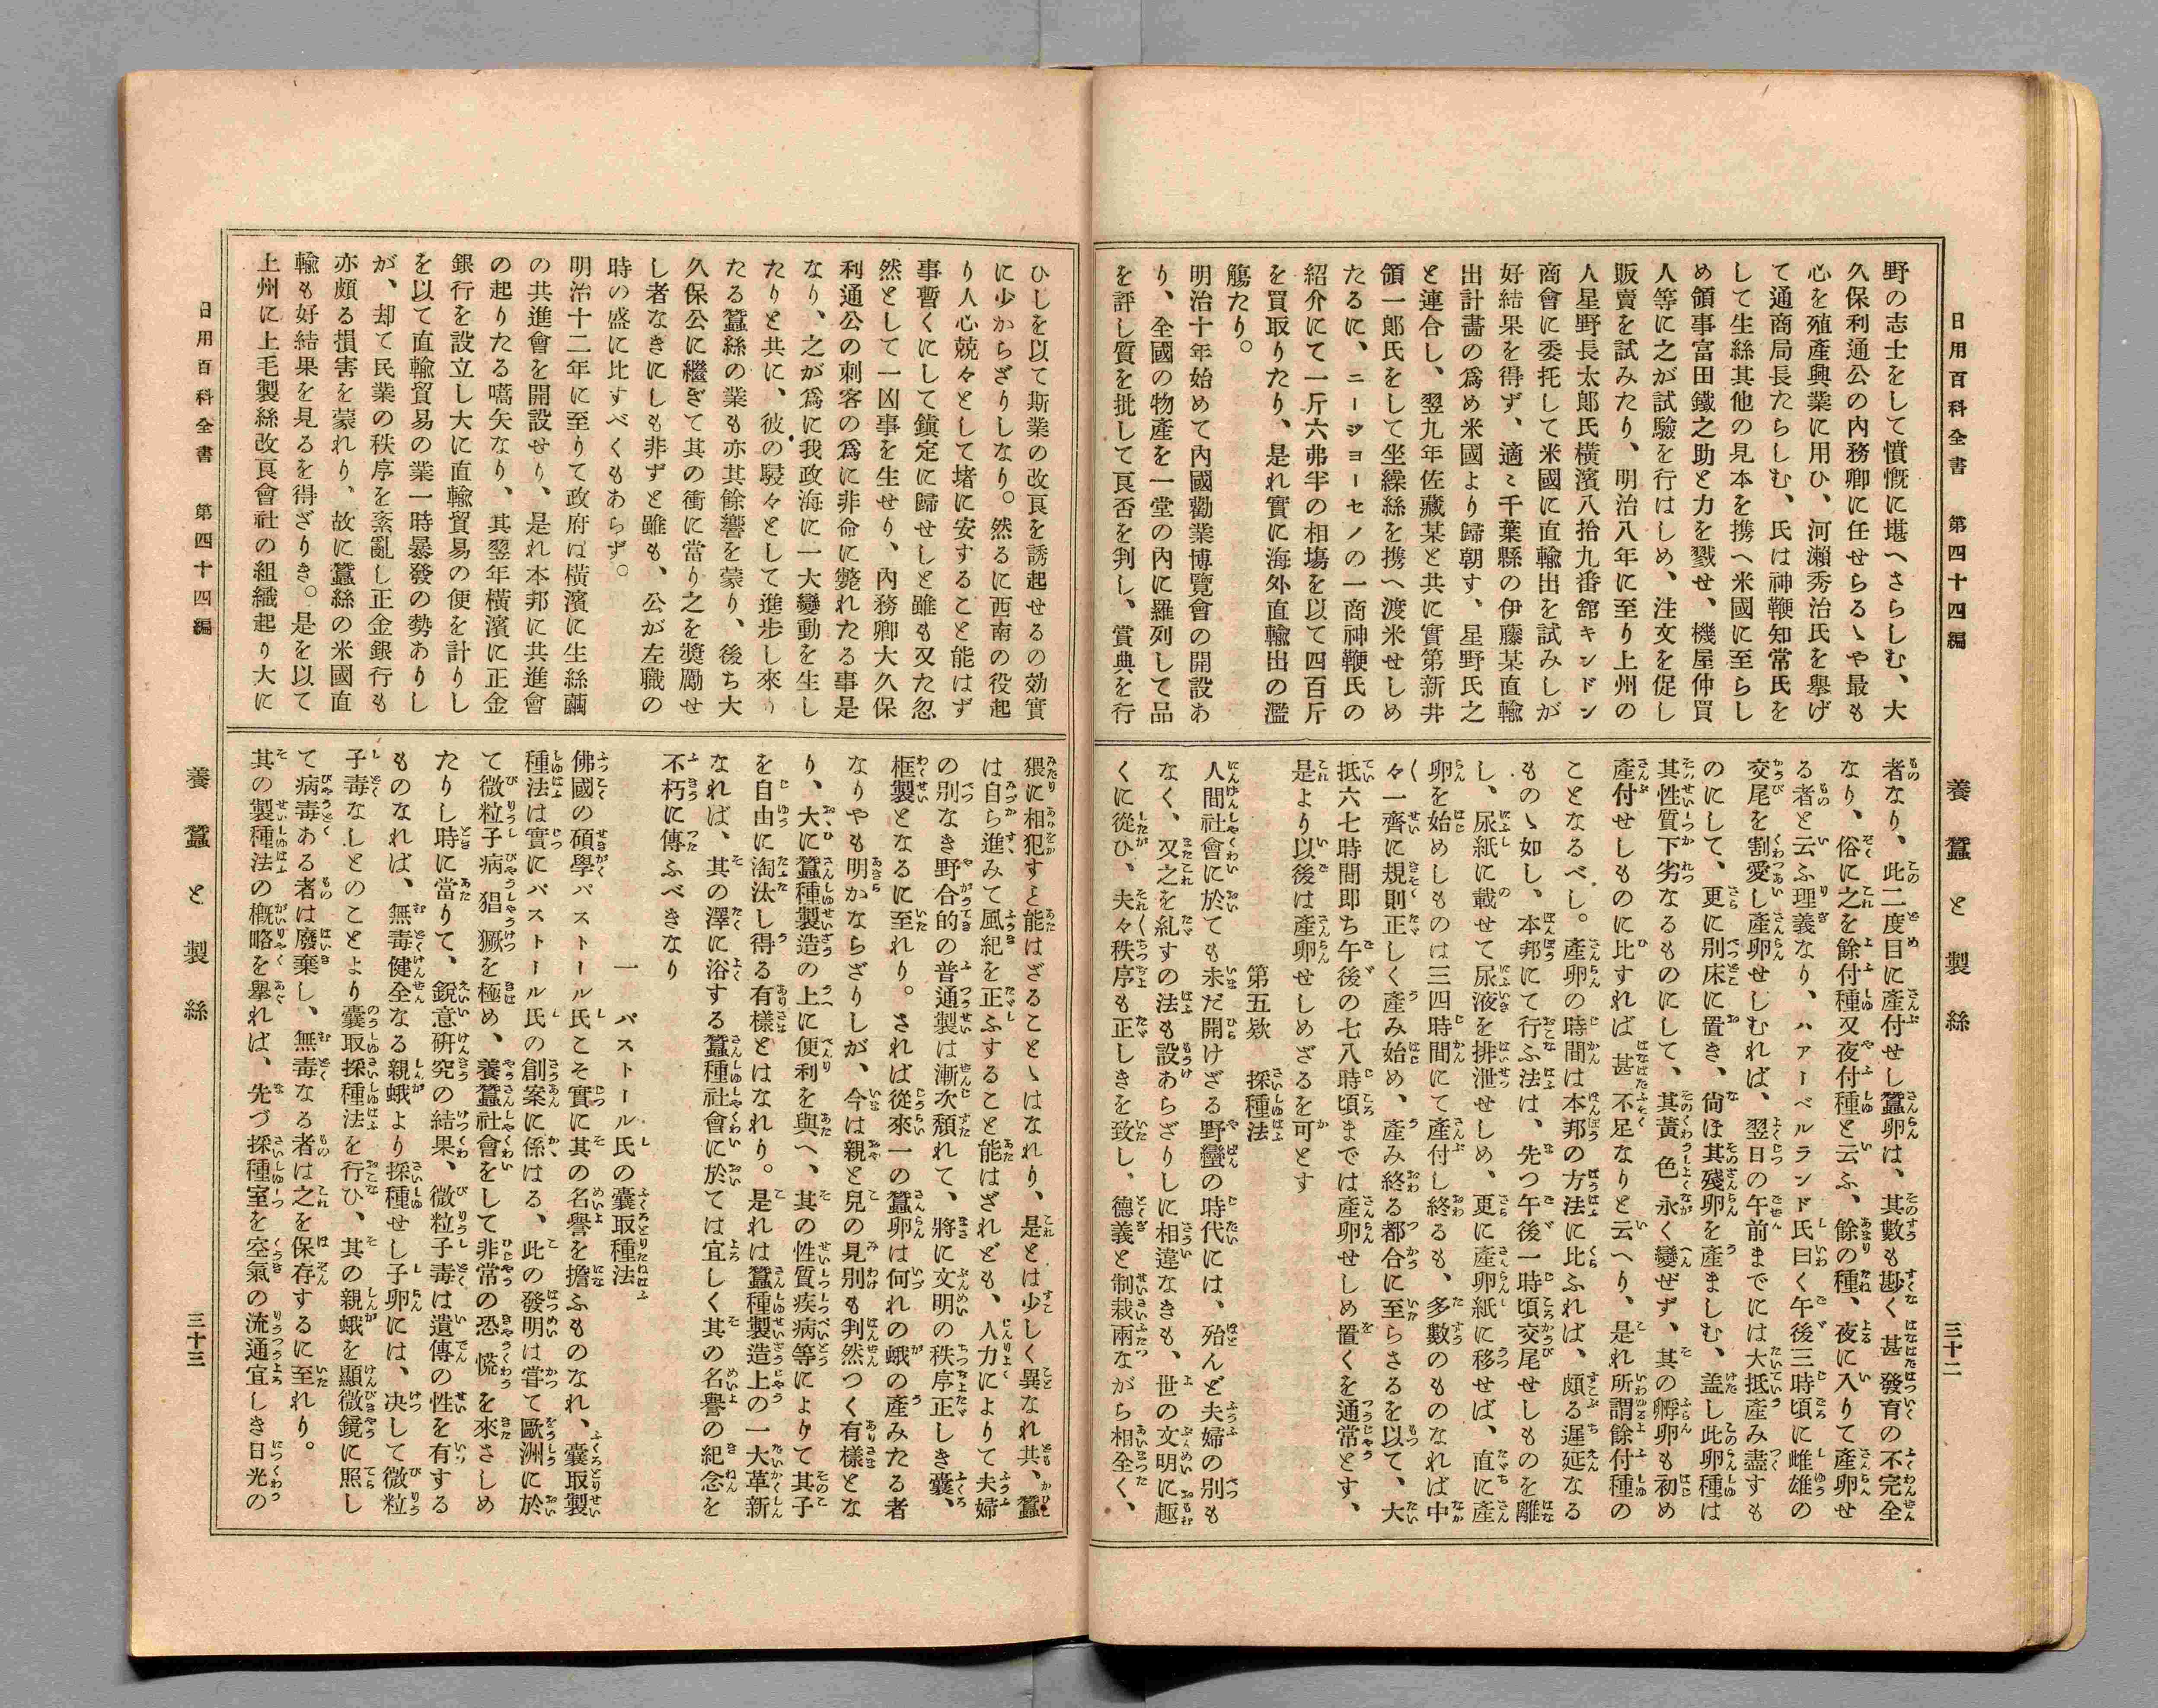 日用百科全書　第四十四編
養蠶と製絲
三十二
野の志士をして憤慨に堪へさらしむ、大
久保利通公の内務卿に任せらるゝや最も
心を殖產興業に用ひ、河瀨秀治氏を擧げ
て通商局長たらしむ、氏は神鞭知常氏を
して生絲其他の見本を携へ米國に至らし
め領事富田鐵之助と力を戮せ、機屋仲買
人等に之が試驗を行はしめ、注文を促し
販賣を試みたり、明治八年に至り上州の
人星野長太郎氏橫濱八拾九番舘キンドン
商會に委托して米國に直輸出を試みしが
好結果を得ず、適〻千葉縣の伊藤某直輸
出計畵の爲め米國より歸朝す、星野氏之
と連合し、翌九年佐藏某と共に實第新井
領一郎氏をして坐繰絲を携へ渡米せしめ
たるに、ニージョーセノの一商神鞭氏の
紹介にて一斤六弗半の相塲を以て四百斤
を買取りたり、是れ實に海外直輸出の濫
觴たり。
明治十年始めて內國勸業博覽會の開設あ
り、全國の物產を一堂の內に羅列して品
を評し質を批して良否を判し、賞典を行
者なり、此二度目に產付せし蠶卵は、其數も尠く甚發育の不完全
なり、俗に之を餘付種又夜付種と云ふ、餘の種、夜に入りて產卵せ
る者と云ふ理義なり、ハァーベルランド氏曰く午後三時頃に雌雄の
交尾を割愛し產卵せしむれば、翌日の午前までには大抵產み盡すも
のにして、更に別床に置き、尙ほ其殘卵を產ましむ、盖し此卵種は
其性質下劣なるものにして、其黃色永く變ぜず、其の孵卵も初め
產付せしものに比すれば、甚不足なりと云へり、是れ所謂餘付種の
ことなるべし。產卵の時間は本邦の方法に比ふれば、頗る遲延なる
ものゝ如し、本邦にて行ふ法は、先つ午後一時頃交尾せしものを離
し、尿紙に載せて尿液を排泄せしめ、更に產卵紙に移せば、直に產
卵を始めしものは三四時間にて產付し終るも、多數のものなれば中
々一齊に規則正しく產み始め、產み終る都合に至らさるを以て、大
抵六七時間即ち午後の七八時頃までは產卵せしめ置くを通常とす、
是より以後は產卵せしめざるを可とす
第五欵　採種法
人間社會に於ても未だ開けざる野蠻の時代には、殆んど夫婦の別も
なく、又之を糺すの法も設あらざりしに相違なきも、世の文明に趣
くに從ひ、夫々秩序も正しきを致し、德義と制裁兩ながら相全く、
ひしを以て斯業の改良を誘起せるの効實
に少からざりしなり。然るに西南の役起
り人心兢々として堵に安すること能はず
事暫くにして鎭定に歸せしと雖も又た忽
然として一凶事を生せり、內務卿大久保
利通公の刺客の爲に非命に斃れたる事是
なり、之が爲に我政海に一大變動を生し
たりと共に、彼の駸々として進步し來り
たる蠶絲の業も亦其餘響を蒙り、後ち大
久保公に繼ぎて其の衝に當り之を奬勵せ
し者なきにしも非ずと雖も、公が左職の
時の盛に比すべくもあらず。
明治十二年に至りて政府は橫濱に生絲繭
の共進會を開設せり、是れ本邦に共進會
の起りたる嚆矢なり、其翌年橫濱に正金
銀行を設立し大に直輸貿易の便を計りし
を以て直輸貿易の業一時暴發の勢ありし
が、却て民業の秩序を紊亂し正金銀行も
亦頗る損害を蒙れり、故に蠶絲の米國直
輸も好結果を見るを得ざりき。是を以て
上州に上毛製絲改良會社の組織起り大に
猥に相犯すと能はざることゝはなれり、是とは少しく異なれ共、蠶
は自ら進みて風紀を正ふすること能はざれども、人力によりて夫婦
の別なき野合的の普通製は漸次頽れて、將に文明の秩序正しき囊、
框製となるに至れり。されば從來一の蠶卵は何れの蛾の產みたる者
なりやも明かならざりしが、今は親と兒の見別も判然つく有樣とな
り、大に蠶種製造の上に便利を與へ、其の性質疾病等によりて其子
を自由に淘汰し得る有樣とはなれり。是れは蠶種製造上の一大革新
なれば、其の澤に浴する蠶種社會に於ては宜しく其の名譽の紀念を
不朽に傳ふべきなり
一　パストール氏の囊取種法
佛國の碩學パストール氏こそ實に其の名譽を擔ふものなれ、囊取製
種法は實にパストール氏の創案に係はる、此の發明は甞て歐洲に於
て微粒子病猖獗を極め、養蠶社會をして非常の恐慌を來さしめ
たりし時に當りて、銳意硏究の結果、微粒子毒は遺傳の性を有する
ものなれば、無毒健全なる親蛾より採種せし子卵には、決して微粒
子毒なしとのことより囊取採種法を行ひ、其の親蛾を顯微鏡に照し
て病毒ある者は廢棄し、無毒なる者は之を保存するに至れり。
其の製種法の槪略を擧れば、先づ採種室を空氣の流通宜しき日光の
日用百科全書　第四十四編
養蠶と製絲
三十三